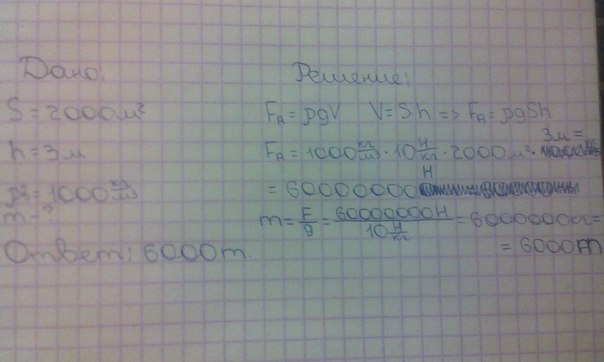 Дано:
S = 2000 м²
h = 3 м
ρв = 1000 кг/м³
m - ?
Ответ: 6000 т.
Решение:
Fа = ρgV V = Sh => Fа = ρgSh
Fа = 1000 кг/м³ · 10 Н/кг · 2000 м² · 3 м =
= 60000000 Н
m = F/g = 60000000 Н / 10 Н/кг = 6000000 кг =
= 6000 т